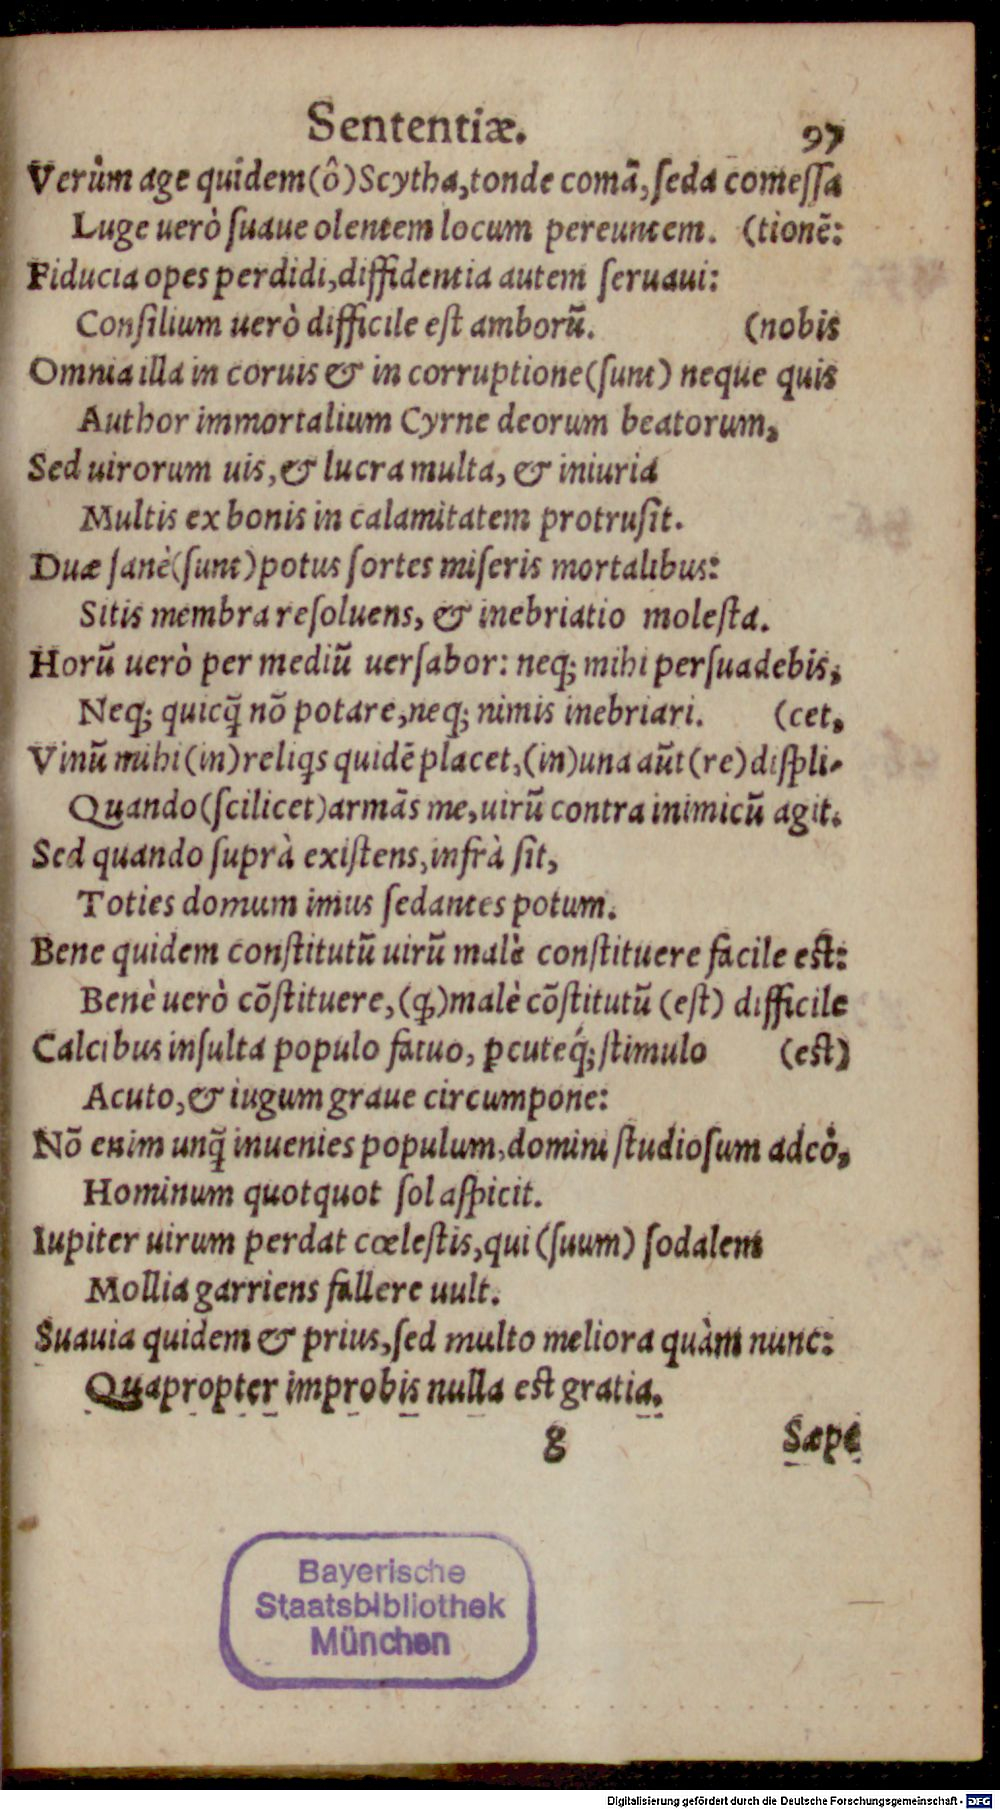 Sententiæ. 97
Verùm age quidem(ô)Scytha,tonde comã,ſeda comeſſa
Luge uerò ſuaue olentem locum pereuntem. (tionẽ:
Fiducia opes perdidi,diffidentia autem ſeruaui:
Conſilium uerò difficile eſt amborũ. (nobis
Omnia illa in coruis & in corruptione(ſunt) neque quis
Author immortalium Cyrne deorum beatorum,
Sed uirorum uis,& lucra multa, & iniuria
Multis ex bonis in calamitatem protruſit.
Duæ ſanè(ſunt)potus ſortes miſeris mortalibus:
Sitis membra reſoluens, & inebriatio moleſta.
Horũ uerò per mediũ uerſabor: neq; mihi perſuadebis,
Neq; quicq̃ nõ potare,neq; nimis inebriari. (cet,
Vinũ mihi(in)reliqs quidẽ placet,(in)una aũt(re)diſpli-
Quando(ſcilicet)armãs me,uirũ contra inimicũ agit.
Sed quando ſuprà exiſtens,infrà ſit,
Toties domum imus ſedantes potum.
Bene quidem conſtitutũ uirũ malè conſtituere facile eſt:
Benè uerò cõſtituere,(ꝗ)malè cõſtitutũ (eſt) difficile
Calcibus inſulta populo fatuo, ꝑcuteq́; ſtimulo (eſt)
Acuto,& iugum graue circumpone:
Nõ enim unq̃ inuenies populum,domini ſtudioſum adeò,
Hominum quotquot ſol aſpicit.
Iupiter uirum perdat cœleſtis,qui (ſuum) ſodalem
Mollia garriens fallere uult.
Suauia quidem & prius,ſed multo meliora quàm nunc:
Quapropter improbis nulla eſt gratia.
g Sæpe
Bayerische
Staatsbibliothek
München
Digitalisierung gefördert durch die Deutsche Forschungsgemeinschaft - DFG